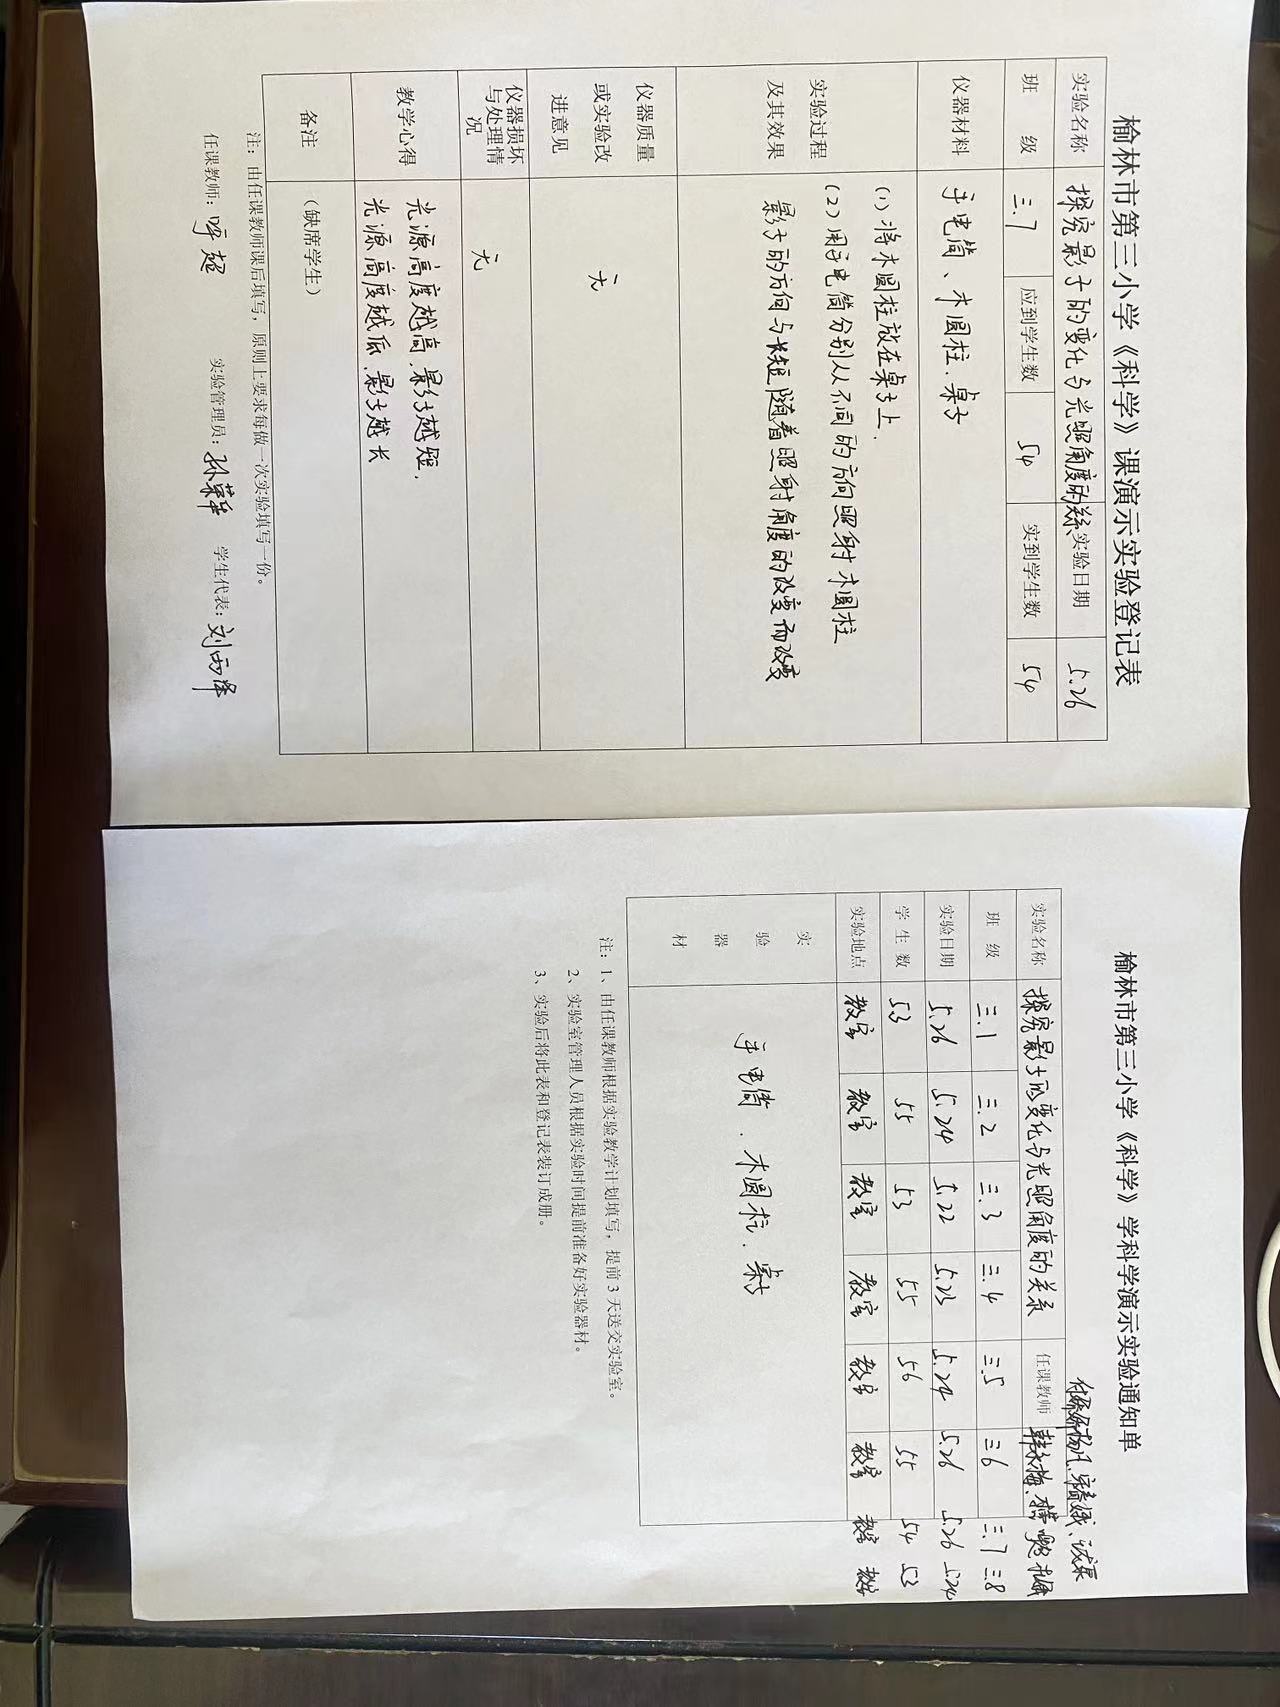 榆林市第三小学《科学》课演示实验登记表
实验名称 探究影子的变化与光照角度的关系 实验日期 5.26
班 级 三.7 应到学生数 54 实到学生数 54
仪器材料 手电筒、木圆柱、桌子
实验过程及其效果
(1) 将木圆柱放在桌子上.
(2) 用手电筒分别从不同的方向照射木圆柱
影子的方向与长短随着照射角度的改变而改变
仪器质量或实验改进意见 无
仪器损坏与处理情况 无
教学心得 光源高度越高.影子越短.
光源高度越底.影子越长
备注 （缺席学生）
注：由任课教师课后填写，原则上要求每做一次实验填写一份。
任课教师：呼超 实验管理员： 学生代表：刘雨泽
榆林市第三小学《科学》学科学演示实验通知单
实验名称 探究影子的变化与光照角度的关系 任课教师
班 级 三.1 三.2 三.3 三.4 三.5 三6 三.7 三.8
实验日期 5.26 5.24 5.22 5.23 5.24 5.26 5.26 5.24
学 生 数 53 55 53 55 56 55 54 53
实验地点 教室 教室 教室 教室 教室 教室 教室 教室
实验器材 手电筒.木圆柱.桌子
注：1、由任课教师根据实验教学计划填写，提前 3 天送交实验室。
2、实验室管理人员根据实验时间提前准备好实验器材。
3、实验后将此表和登记表装订成册。